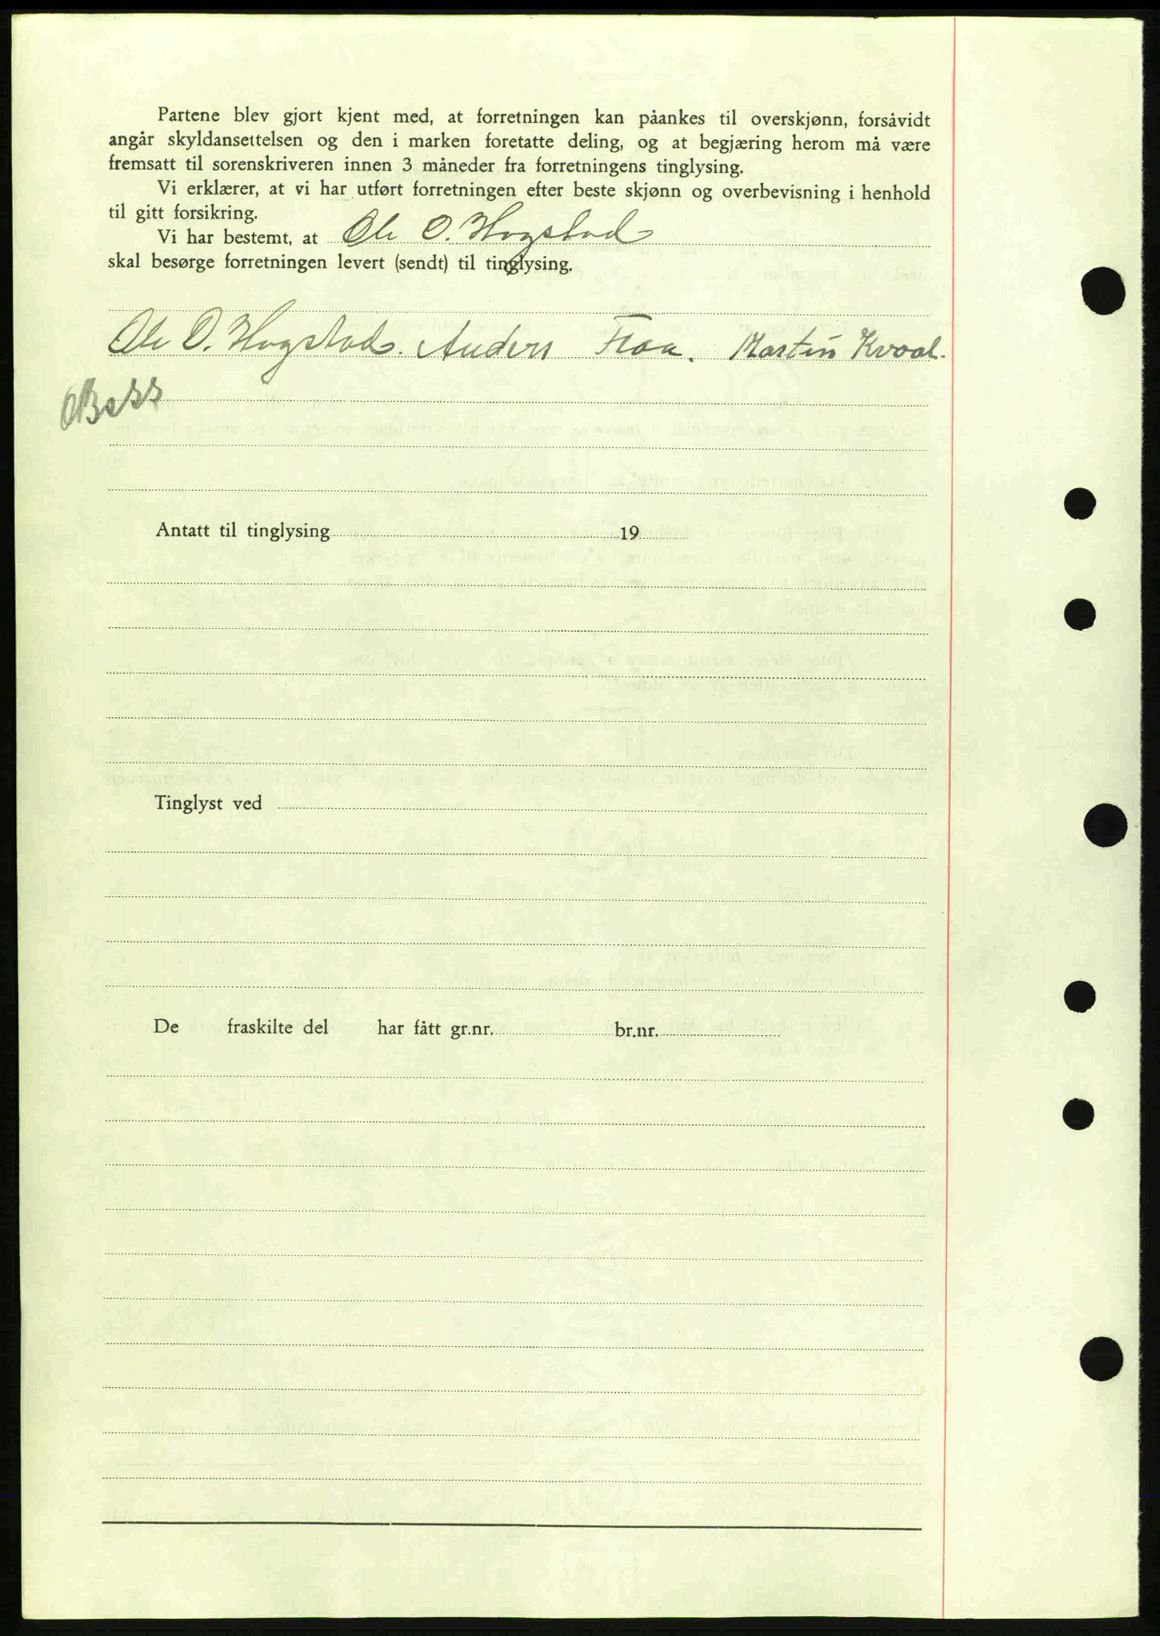 Partene blev gjort kjent med, at forretningen kan påankes til overskjønn, forsåvidt
angår skyldansettelsen og den i marken foretatte deling, og at begjæring herom må være
fremsatt til sorenskriveren innen 3 måneder fra forretningens tinglysing.
Vi erklærer, at vi har utført forretningen efter beste skjønn og overbevisning i henhold
til gitt forsikring.
Vi har bestemt, at Ole O. Hogstad
skal besørge forretningen levert (sendt) til tinglysing.
Ole O. Hogstad. Anders Flaa. Martin Kvaal.
Antatt til tinglysing 19
Tinglyst ved
De fraskilte del har fått gr.nr. br.nr.